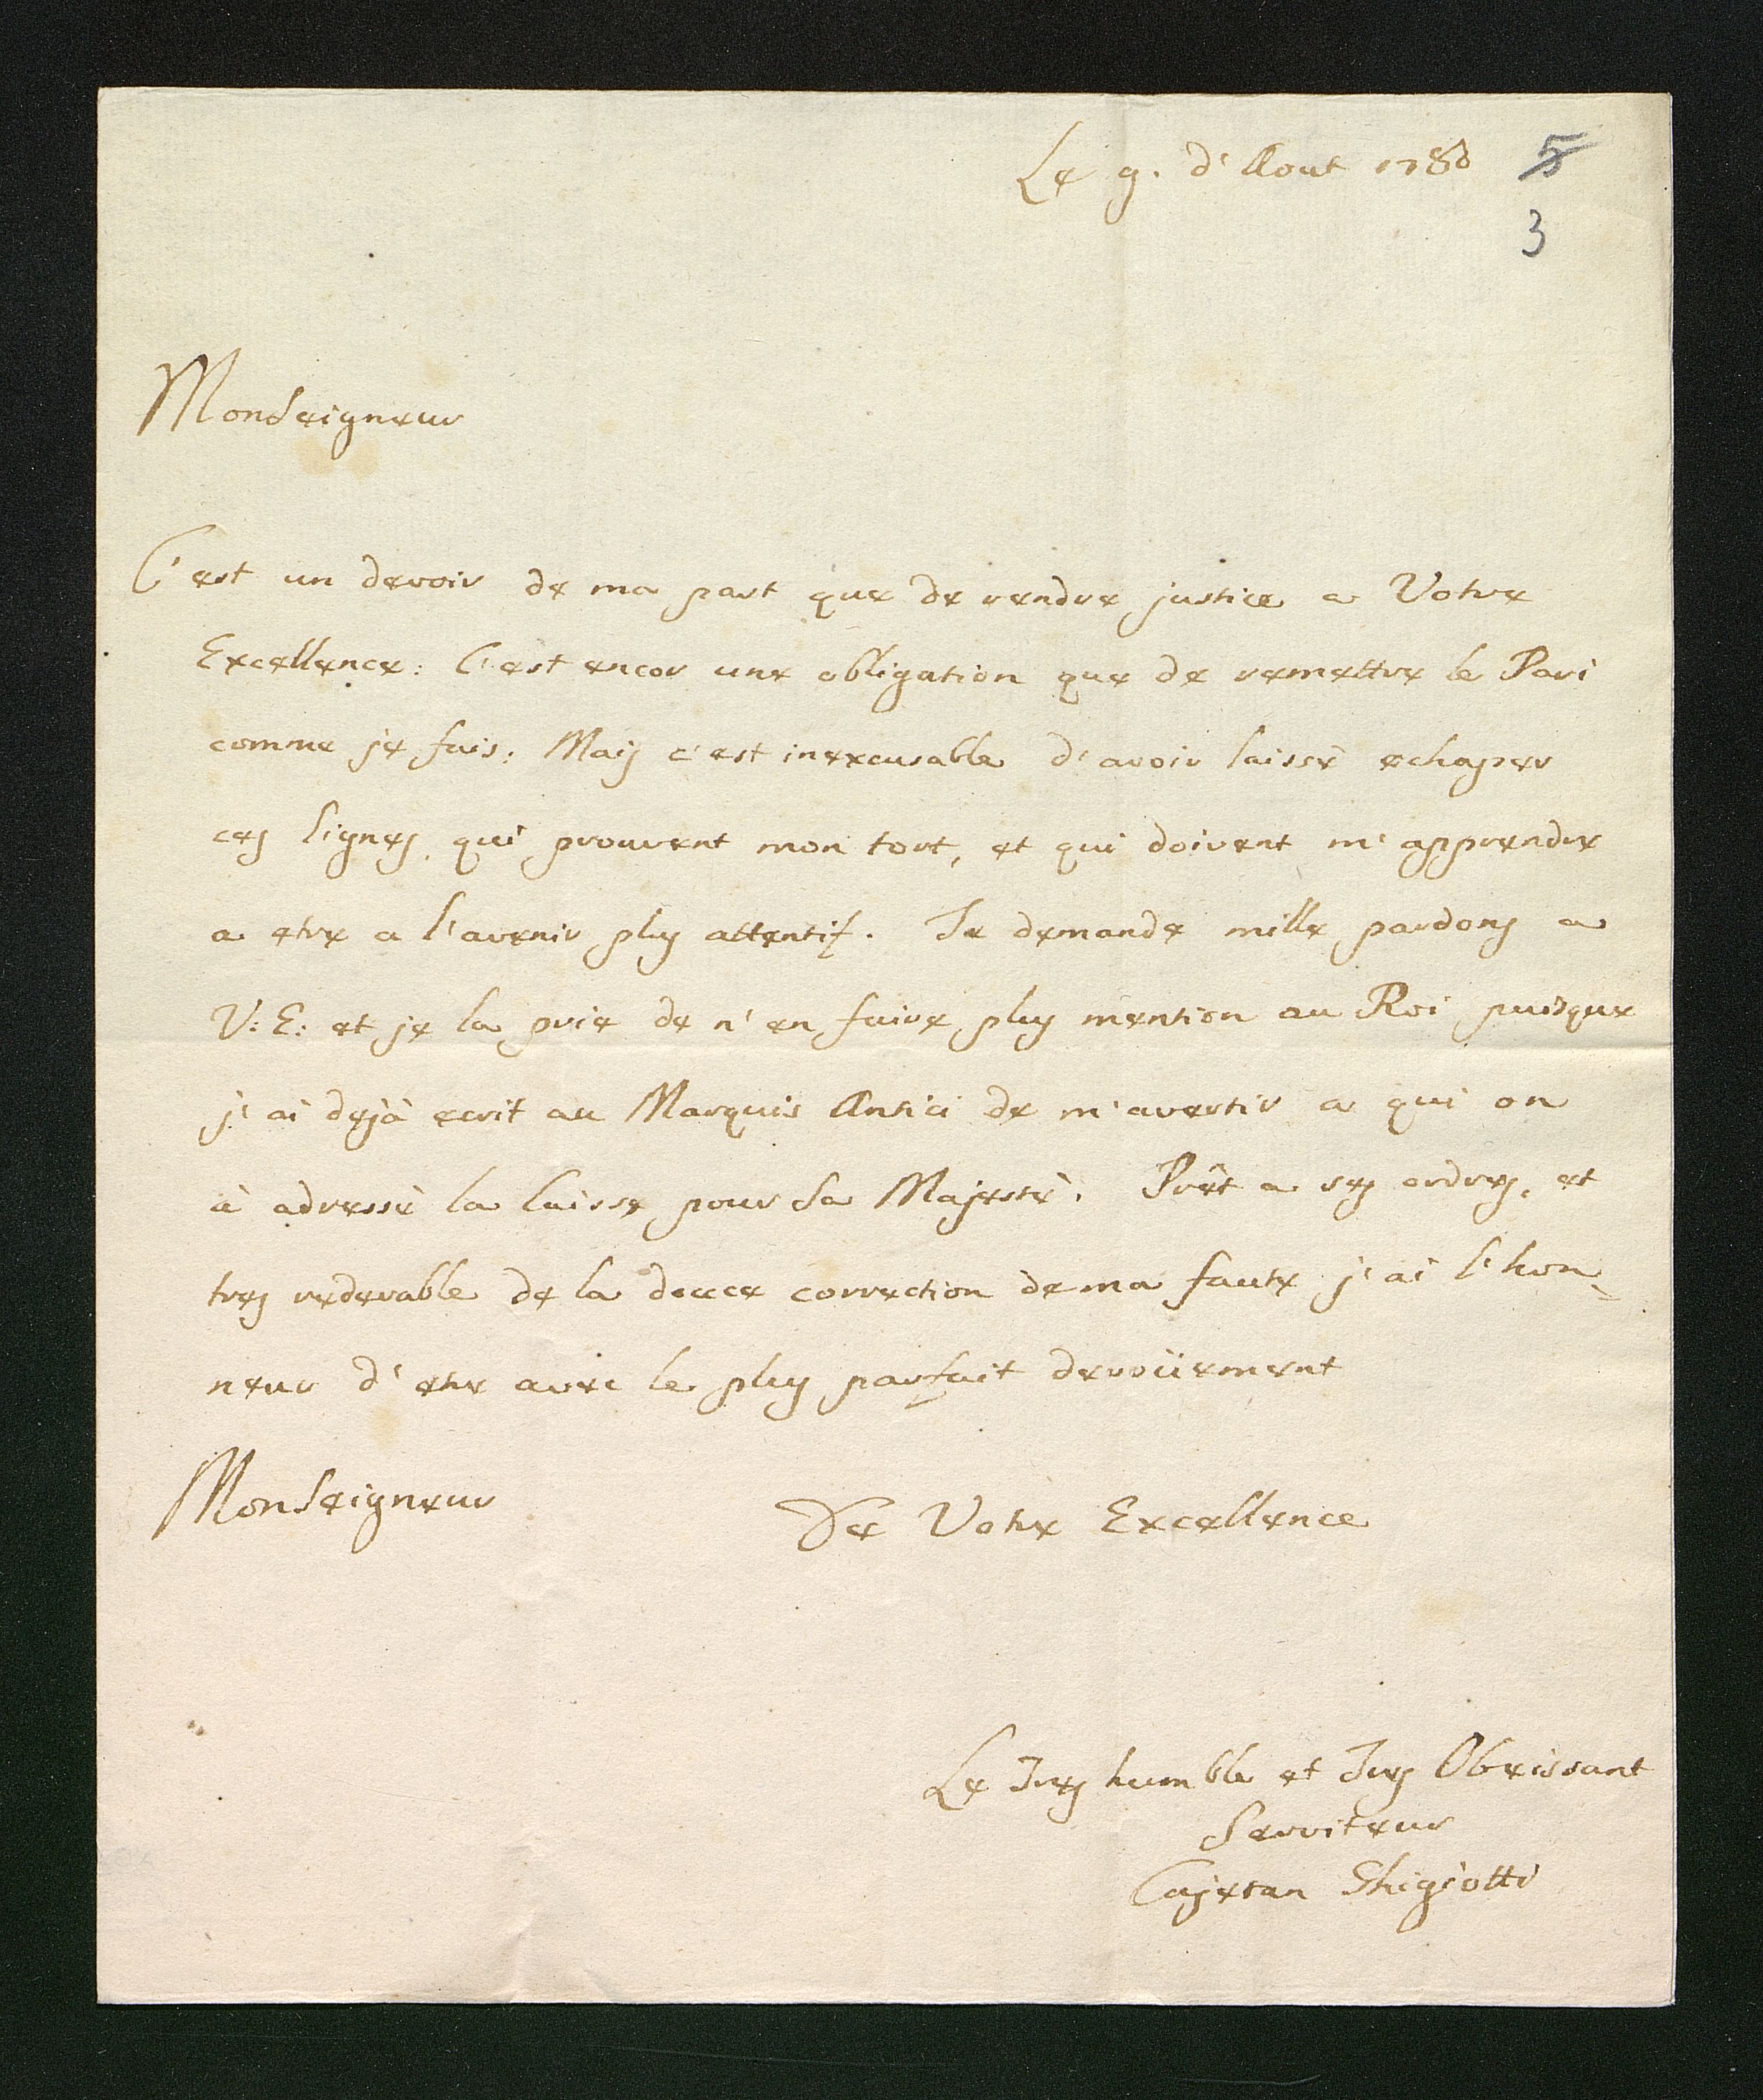 Le 9. d'Aout 1780
5
3
MonSeigneur
C'est un devoir de ma part que de rendre justice a Votre
Excellence: C'est encor une obligation que de remettre le Pari
comme je fais: Mais c'est inexcusable d'avoir laissé echaper
ces lignes, qui prouvent mon tort, et qui doivent m'apprendre
a etre a l'avenir plus attentif. Je demande mille pardons a
V: E: et je la prie de n'en faire plus mention au Roi puisque
j'ai dejà ecrit au Marquis Antici de m'avertir a qui on
à adressè la Caisse pour Sa Majestè. Prêt a ses ordres, et
tres redevable de la douce correction de ma faute j'ai l'hon-
neur d'etre avec le plus parfait devoüement
MonSeigneur
De Votre Excellence
Le Tres humble et Tres Obeissant
Serviteur
Cajetan Ghigiotti